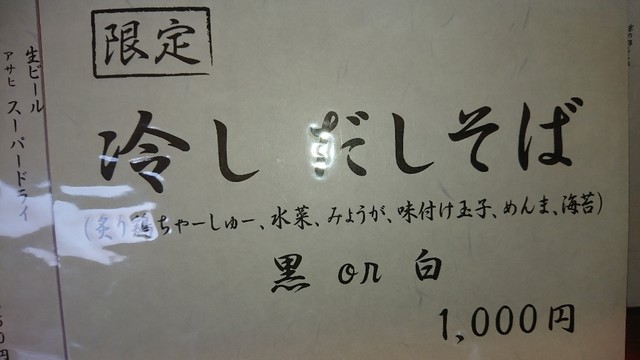 限定
冷しだしそば
(炙り鶏ちゃーしゅー、水菜、みょうが、味付け玉子、めんま、海苔)
黒 or 白
1,000円
生ビール
アサヒ スーパードライ